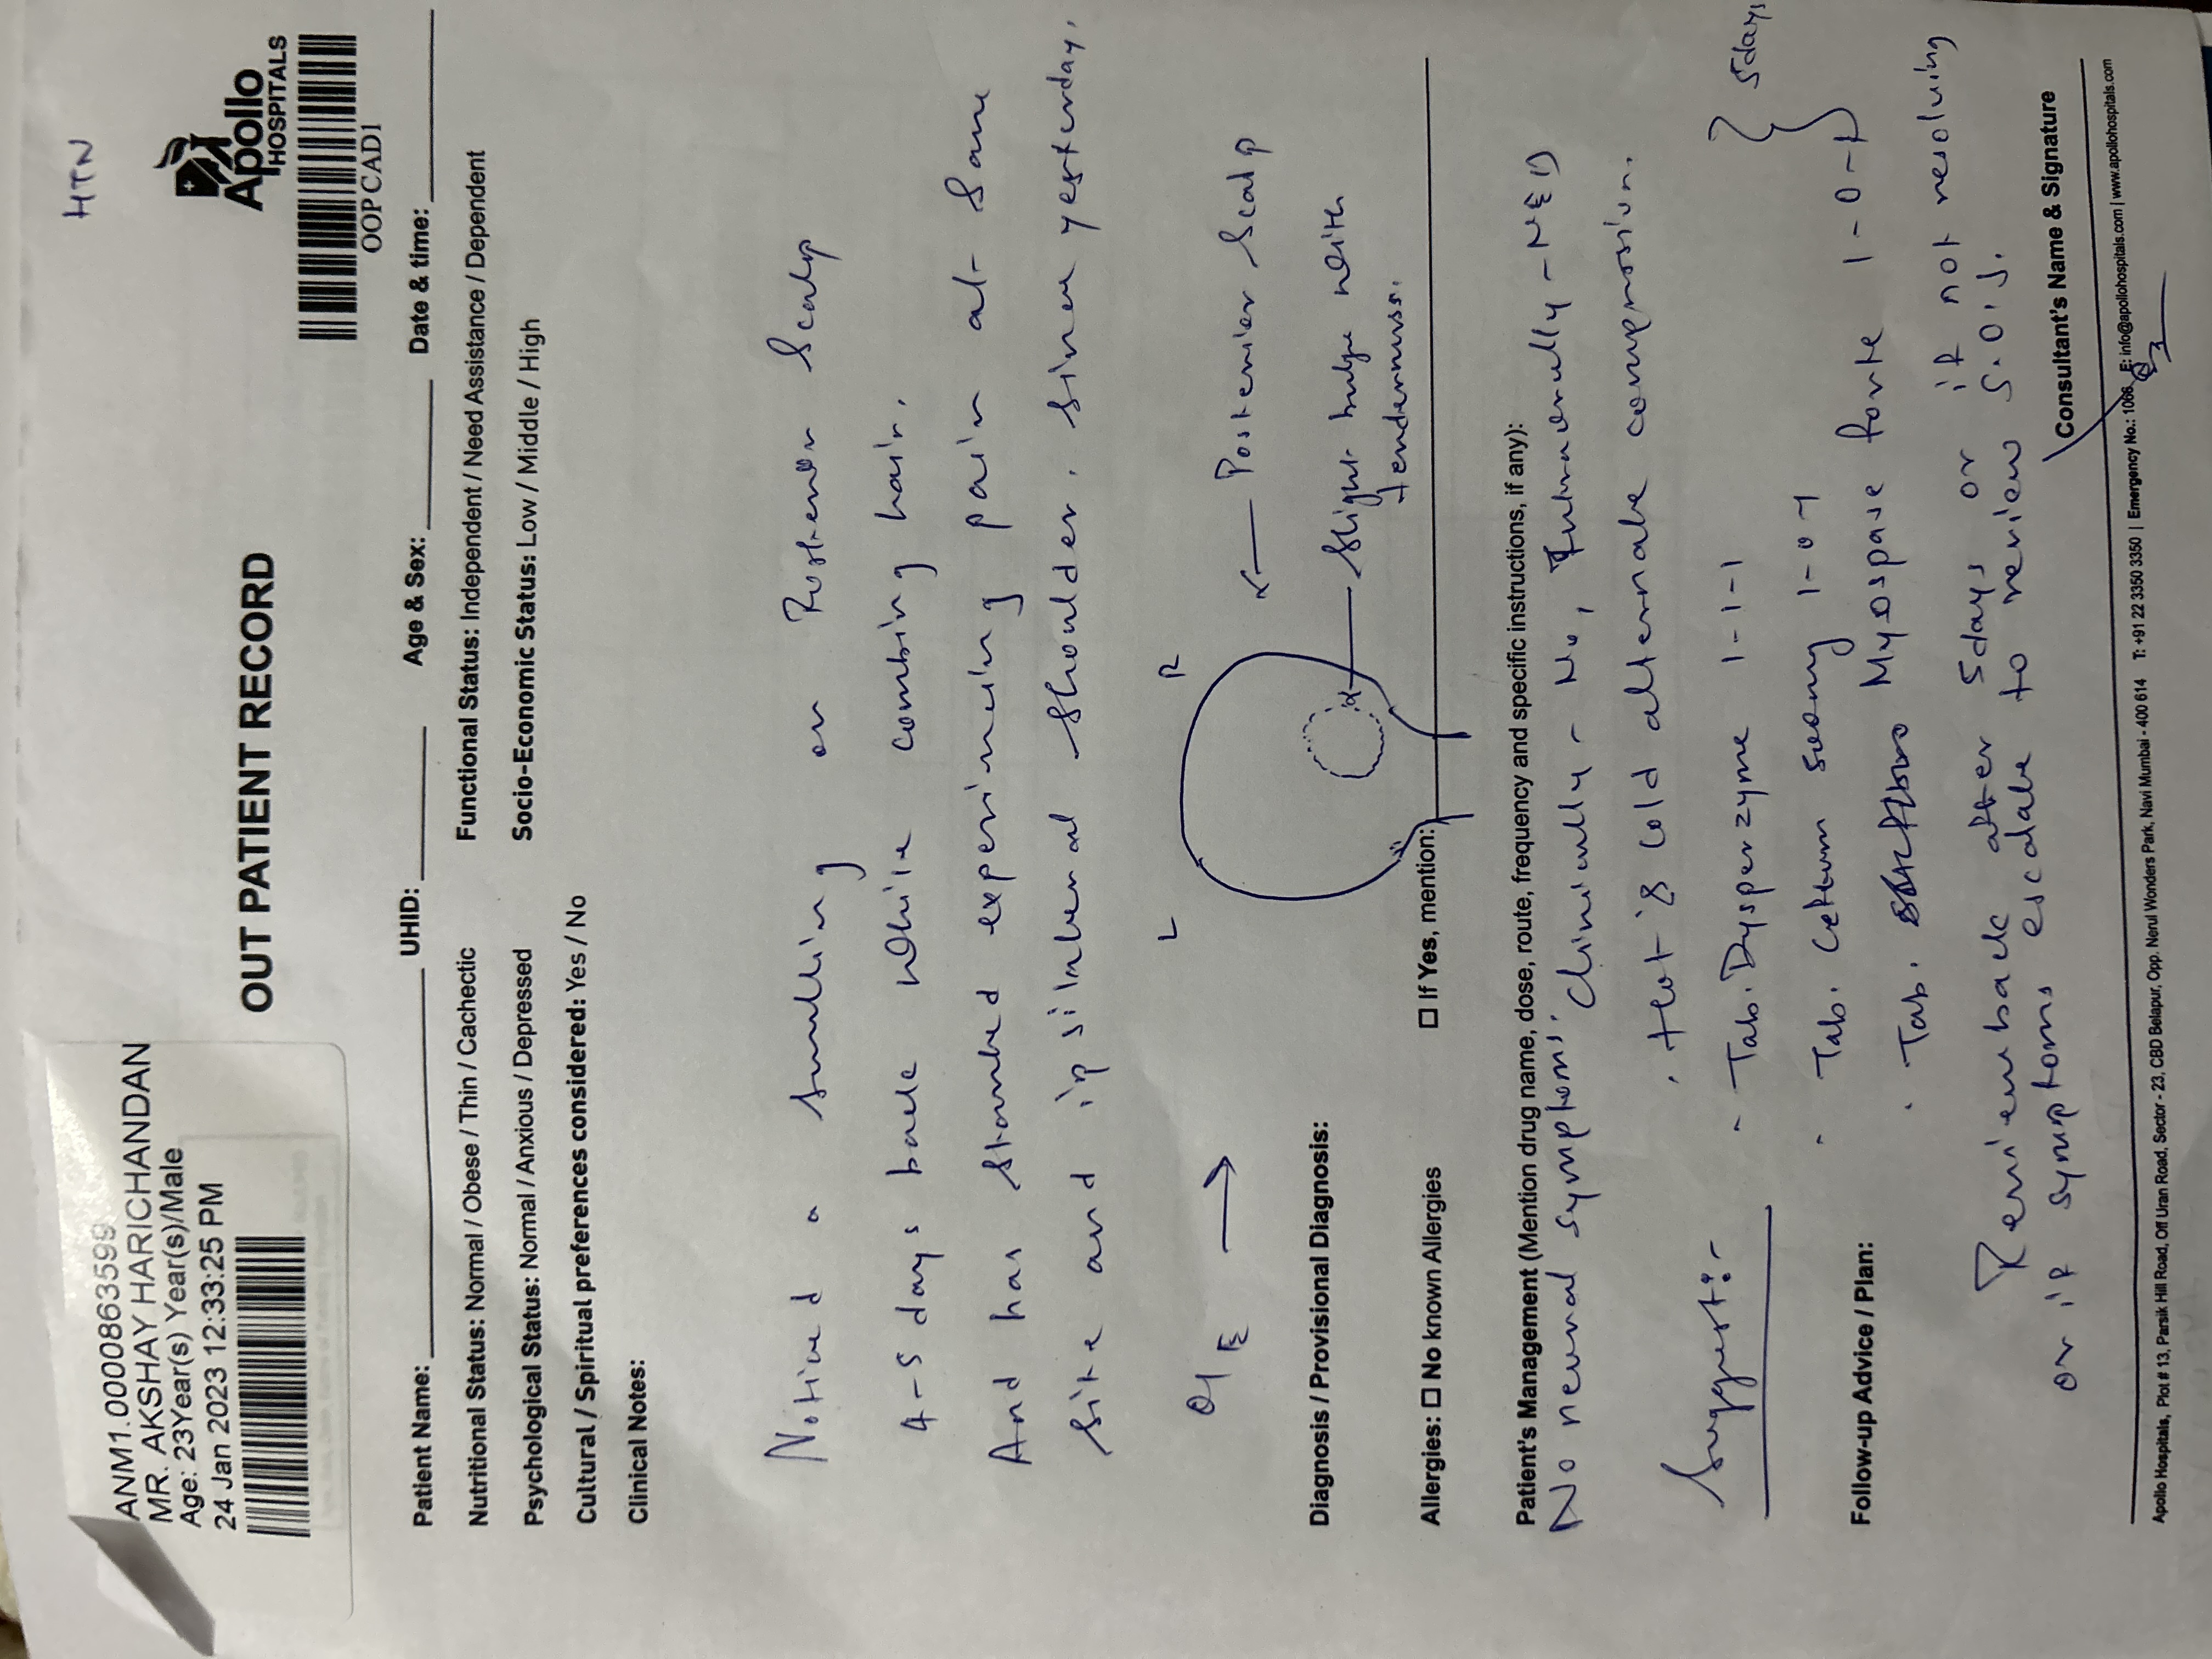 HTN
ANM1.0000863599
MR. AKSHAY HARICHANDAN
Age: 23Year(s) Year(s)/Male
24 Jan 2023 12:33:25 PM
OUT PATIENT RECORD
Apollo
HOSPITALS
OOPCAD1
Patient Name: UHID: Age & Sex: Date & time:
Nutritional Status: Normal / Obese / Thin / Cachectic Functional Status: Independent / Need Assistance / Dependent
Psychological Status: Normal / Anxious / Depressed Socio-Economic Status: Low / Middle / High
Cultural / Spiritual preferences considered: Yes / No
Clinical Notes:
Noticed a swelling on Posterior Scalp
4-5 days back while combing hair.
And has started experiencing pain at same
site and ipsilateral shoulder. since yesterday.
L R
O/E → ← Posterior Scalp
Diagnosis / Provisional Diagnosis:
Slight bulge with
tenderness.
Allergies: No known Allergies If Yes, mention:
Patient's Management (Mention drug name, dose, route, frequency and specific instructions, if any):
No neural symptoms. Clinically - No, Intraorally - NED
Hot & cold alternate compression.
Suggest:-
Tab. Dysperzyme 1-1-1
5days
Tab. Ceftum 500mg 1-0-1
Follow-up Advice / Plan:
Tab. Myospase forte 1-0-1
Review back after 5days or if not resolving
or if symptoms escalate to review S.O.S.
Consultant's Name & Signature
Apollo Hospitals, Plot # 13, Parsik Hill Road, Off Uran Road, Sector - 23, CBD Belapur, Opp. Nerul Wonders Park, Navi Mumbai - 400 614 T: +91 22 3350 3350 | Emergency No.: 1066 E: info@apollohospitals.com | www.apollohospitals.com